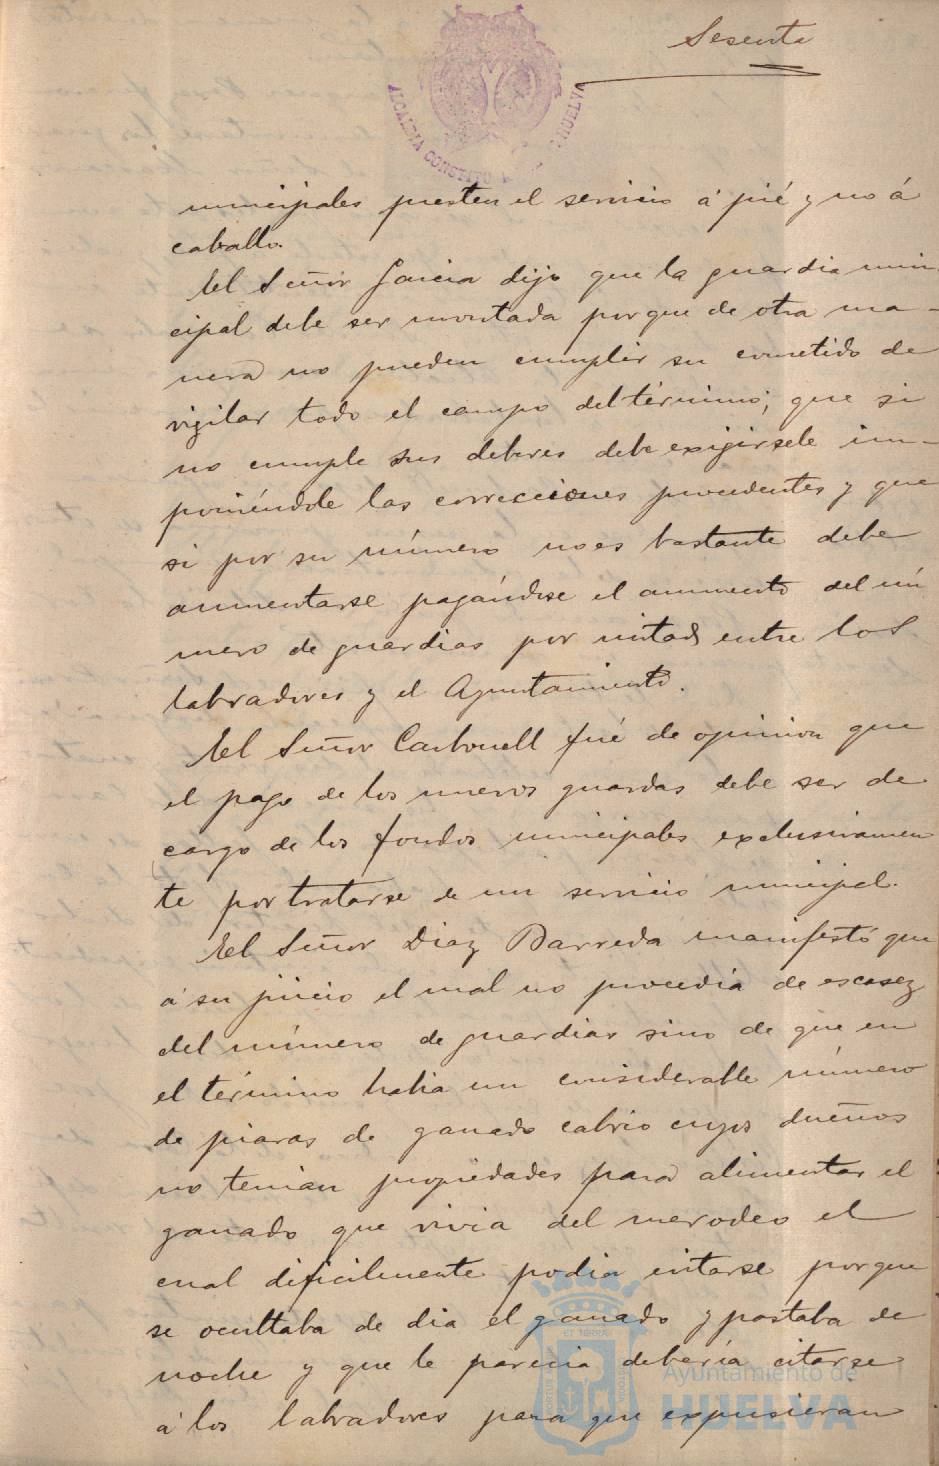 Sesenta
ALCALDIA CONSTITU HUELVA
municipales presten el servicio á pié y no á
caballo.
El Señor Garcia dijo que la guardia muni
cipal debe ser montada porque de otra ma-
nera no pueden cumplir su cometido de
vigilar todo el campo del término; que si
no cumple sus deberes debe exijirsele im-
poniéndole las correcciones procedentes y que
si por su número no es bastante debe
aumentarse pagándose el aumento del nú
mero de guardias por mitad entre los
labradores y el Ayuntamiento.
El Señor Carbonell fué de opinion que
el pago de los nuevos guardas debe ser de
cargo de los fondos municipales exclusivamen
te por tratarse de un servicio municipal.
El Señor Diaz Barreda manifestó que
á su juicio el mal no procedia de escasez
del número de guardias sino de que en
el término habia un considerable número
de piaras de ganado cabrio cuyos dueños
no tenian propiedades para alimentar el
ganado que vivia del merodeo el
cual dificilmente podia evitarse porque
se ocultaba de dia el ganado y pastaba de
noche y que le parecia deberia citarse
á los labradores para que expusieran
Ayuntamiento de
HUELVA